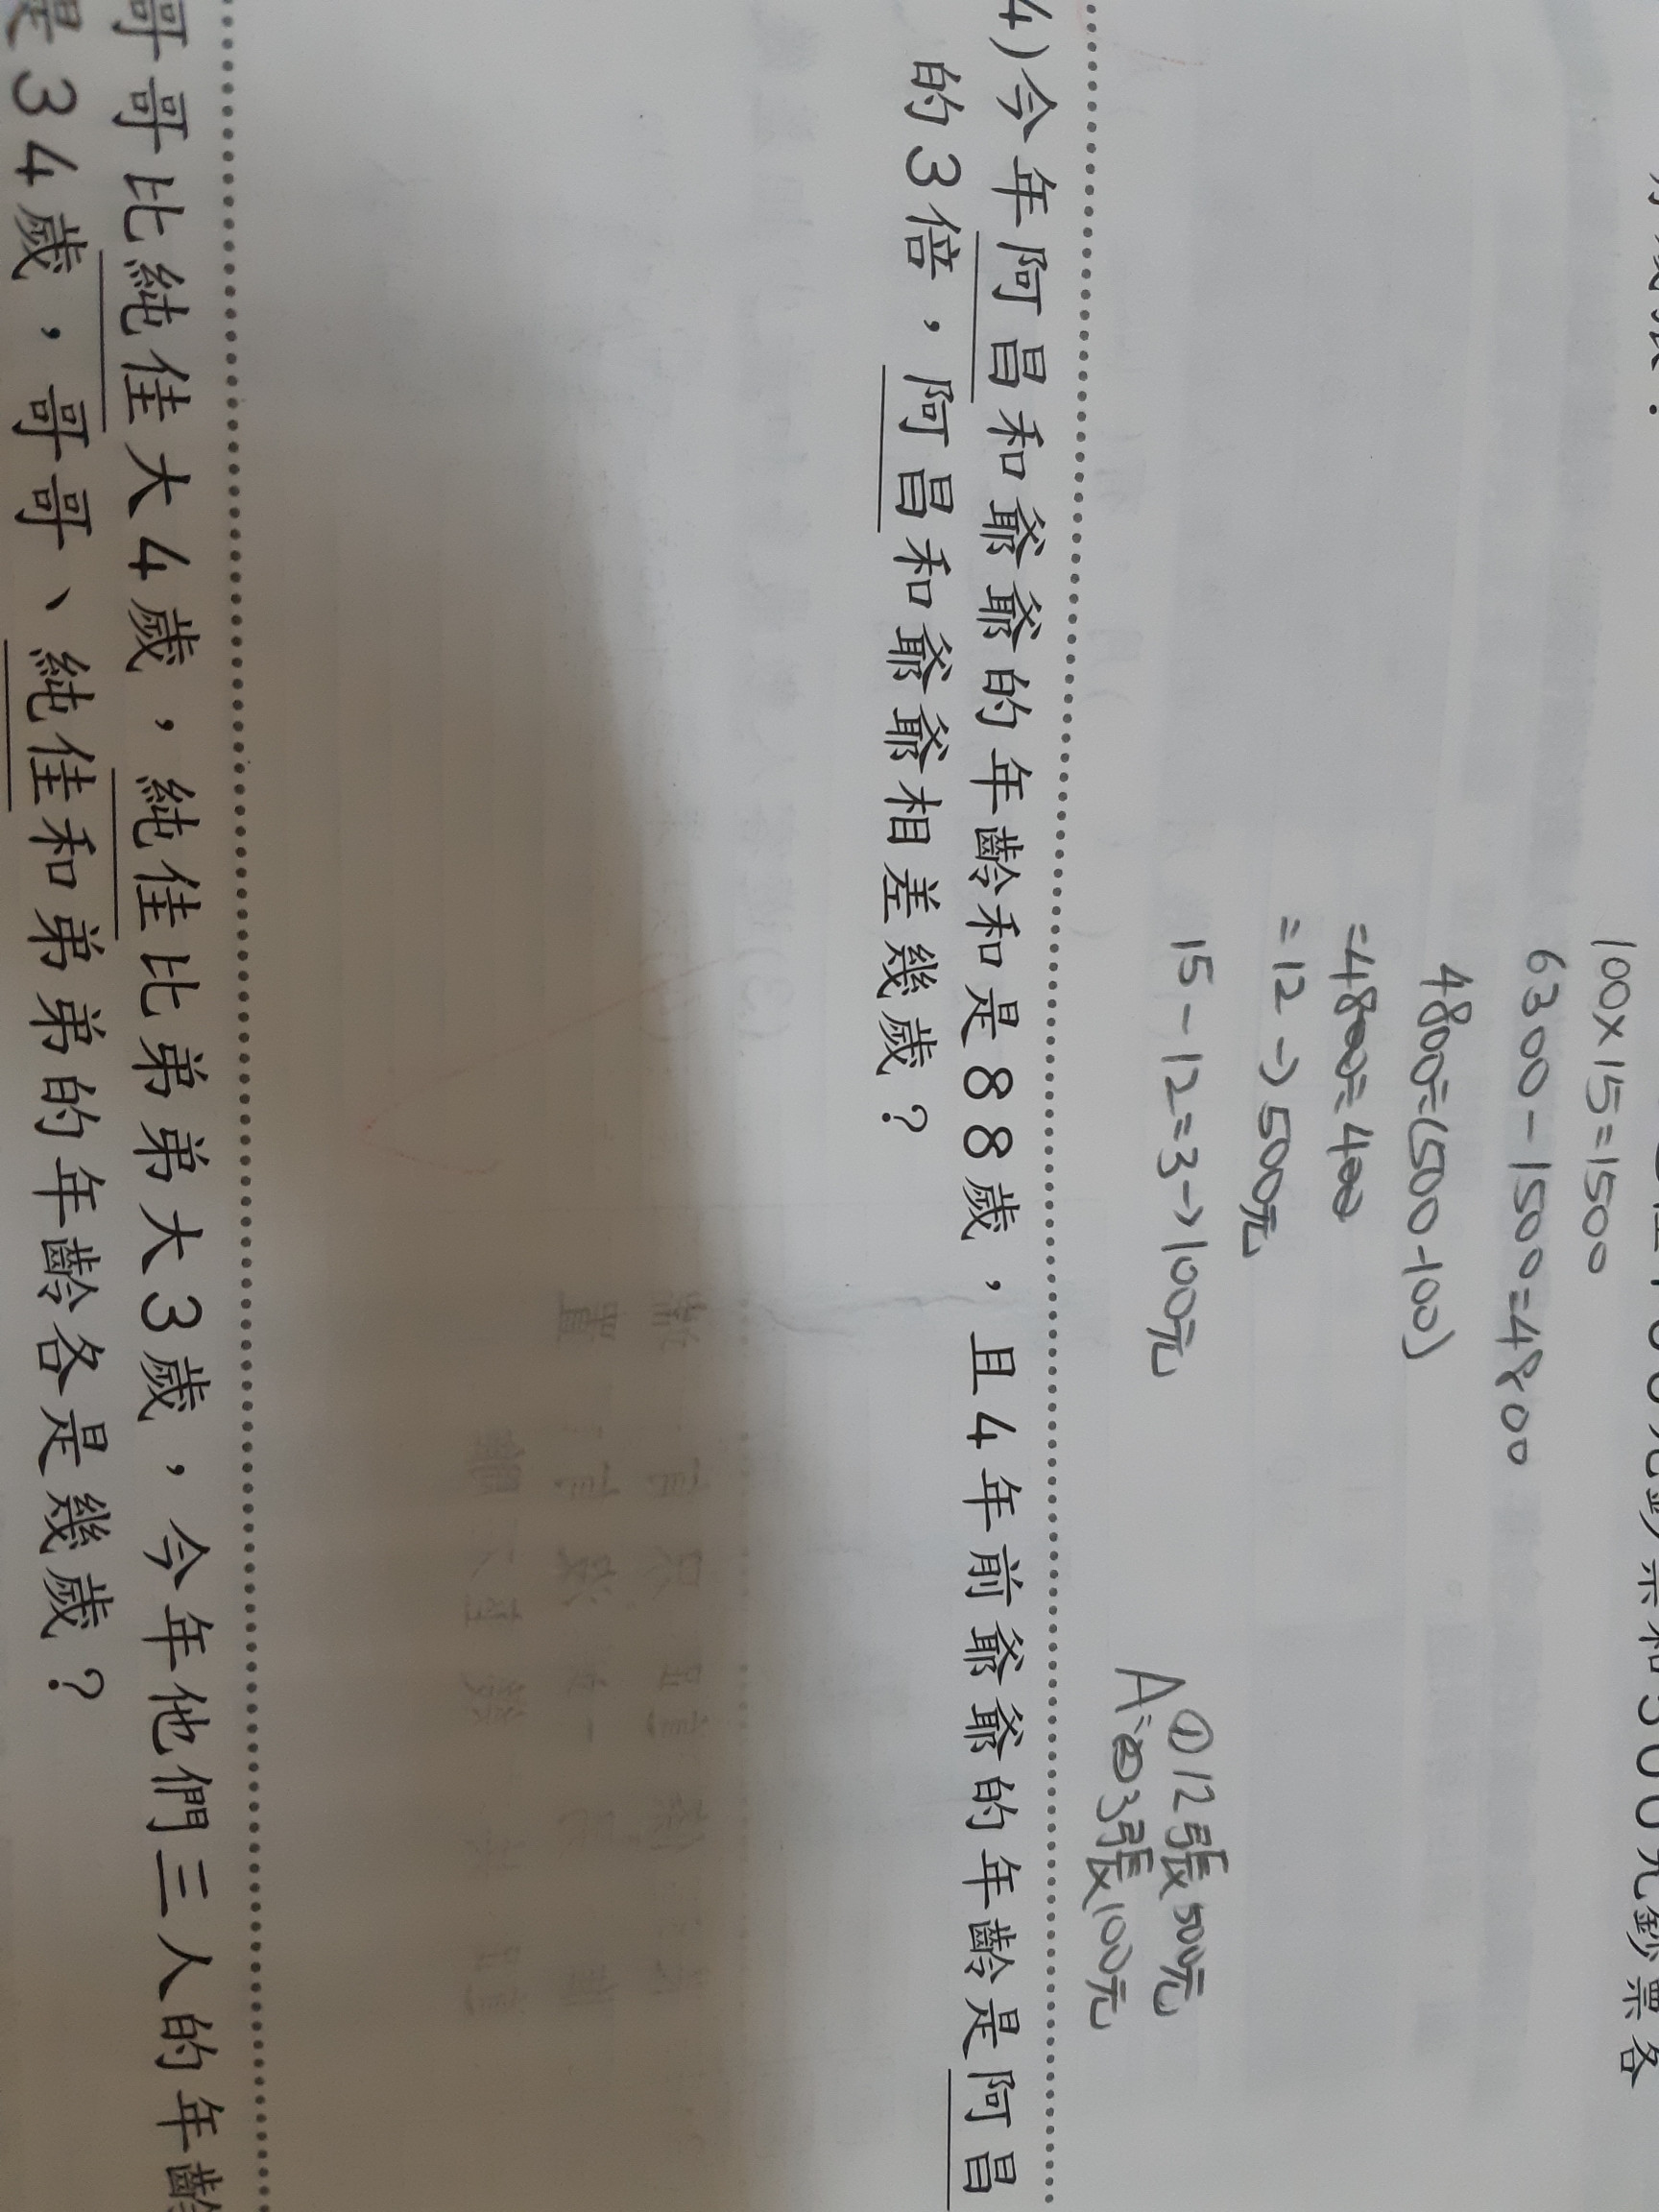 100×15=1500
6300-1500=4800
4800÷(500-100)
=4800÷400
=12→500元
15-12=3→100元
①12張500元
A:②3張100元
4)今年阿昌和爺爺的年齡和是88歲，且4年前爺爺的年齡是阿昌
的3倍，阿昌和爺爺相差幾歲？
哥哥比純佳大4歲，純佳比弟弟大3歲，今年他們三人的年齡
是34歲，哥哥、純佳和弟弟的年齡各是幾歲？